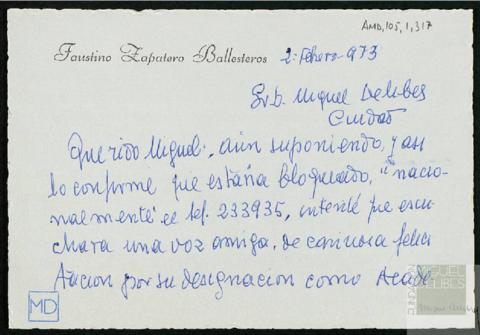 AMD,105,1,317
Faustino Zapatero Ballesteros
2-Febrero-973
Sr. D. Miguel Delibes
Ciudad
Querido Miguel: aún suponiendo, y asi
lo confirme que estaria bloqueado, "nacio-
nalmente" el telf. 233935, intenté que escu-
chara una voz amiga, de cariñosa felici
tacion por su designacion como Acadé
MD
FUNDACIÓN
MIGUEL
DELIBES